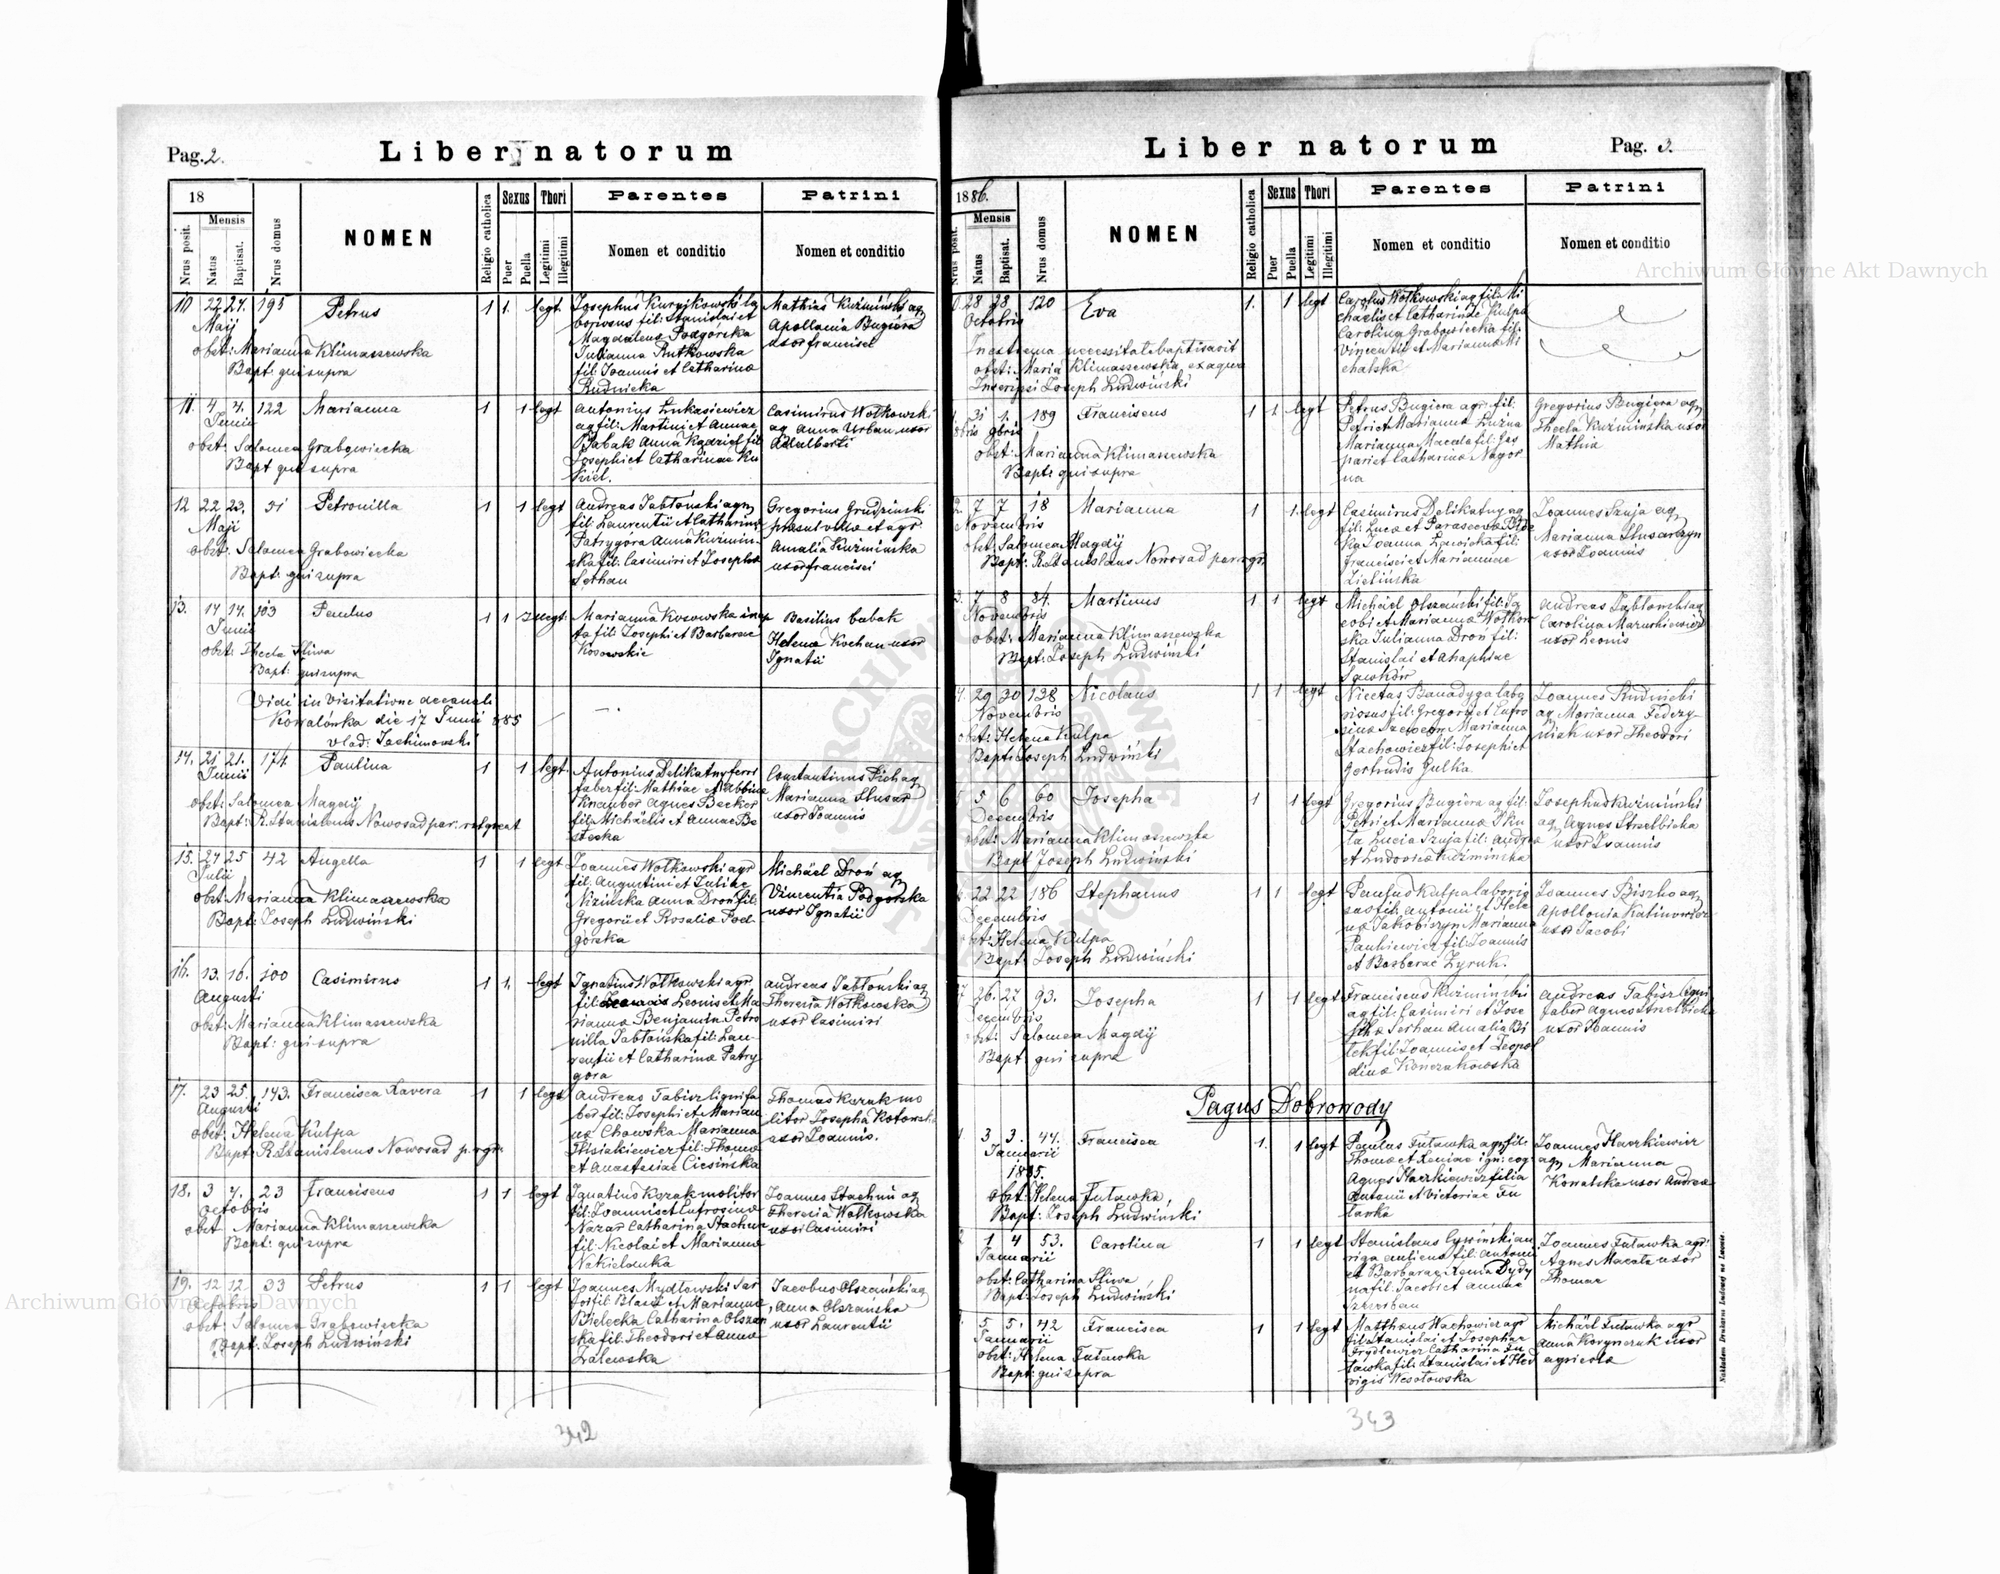 Pag. 2.
Liber natorum
18
Mensis
Nrus posit.
Natus
Baptisat.
Nrus domus
NOMEN
Religio catholica
Sexus
Puer
Puella
Thori
Legitimi
Illegitimi
Parentes
Nomen et conditio
Patrini
Nomen et conditio
10 22 24. 195 Petrus 1 1. legt.
Maij
obst: Marianna Klimaszewska
Bapt: qui supra
Josephus Kurnikowski la
boriosus fil: Stanislai et
Magdalena Podgórska
Julianna Rutkowska
fil: Joannis et Catharinæ
Rudnicka
Mathias Kuźmiński ag
Apollonia Bugiera
uxor Francisci
11. 4 4. 122 Marianna 1 1 legt
Junii
obst: Salomea Grabowiecka
Bapt qui supra
Antonius Łukasiewicz
ag fil: Martini et Annae
Babak Anna Kądziel fil
Josephi et Catharinae Ku
kiel.
Casimirus Wołkowski
ag Anna Urban uxor
Adalberti
12 22 23. 51 Petronilla 1 1 legt
Maji
obst: Salomea Grabowiecka
Bapt: qui supra
Andreas Jabłoński agr
fil: Laurentii et Catharinæ
Patrygóra Anna Kuźmiń-
ska fil: Casimiri et Josephæ
Serhan
Gregorius Grudziński
et agr.
Amalia Kuźmińska
uxor Francisci
13. 14 14. 103 Paulus 1 1 illegt.
Junii
obst: Thecla Śliwa
Bapt: qui supra
Marianna Kosowska
ta fil: Josephi et Barbarae
Kosowskie
Basilius Babak
Helena Kochan uxor
Ignatii
Vidi in visitatione decanali
Kowalówka die 17 Junii 885
Vlad: Jachimowski
14. 21 21. 174 Paulina 1 1 legt.
Junii
obst: Salomea Magdij
Bapt: R. Stanislaus Nowosad par:
Antonius Delikatny ferri
faber fil: Mathiae et
Knauber Agnes Becker
fil: Michaelis et Annae Be
Constantinus Pich ag
Marianna Ślusar
uxor Joannis
15. 24 25 42 Angella 1 1 legt
Julii
obst: Marianna Klimaszewska
Bapt: Joseph Ludwiński
Joannes Wołkowski agr
fil: Augustini et Juliae
Nizińska Anna Droń fil:
Gregorii et Rosaliæ Pod-
górska
Michaël Droń ag
Vincentia Podgórska
uxor Ignatii
16. 13. 16. 100 Casimirus 1 1. legt
Augusti
obst: Marianna Klimaszewska
Bapt: qui supra
Ignatius Wołkowski agr
fil: Leonis et Ma
rianna Benjamin Petro
nilla Jabłońska fil: Lau-
rentii et Catharinæ Patry
góra
Andreas Jabłoński ag
Theresia Wołkowska
uxor Casimiri
17. 23 25. 143. Francisca Xavera 1 1 legt
Augusti
obst: Helena Kulpa
Bapt: R. Stanislaus Nowosad p. rgr.
Andreas Tabisz lignifa
ber fil: Josephi et Marian
næ Chowska Marianna
fil: Thomæ
et Anastasiae Ciesińska
Thomas Kozak mo
litor Josepha Kotowsk
uxor Joannis.
18. 3 4. 23 Franciscus 1 1 legt
Octobris
obst: Marianna Klimaszewska
Bapt: qui supra
Ignatius Kozak molitor
fil: Joannis et Eufrosinæ
Nazar Catharina Stachur
fil: Nicolai et Mariannæ
Nakielonka
Joannes Stachur ag
Theresia Wołkowska
uxor Casimiri
19. 12 12. 33 Petrus 1 1 legt.
Octobris
obst: Salomea Grabowiecka
Bapt: Joseph Ludwiński
Joannes Mydłowski sar
tor fil: Blasii et Mariannæ
Bielecka Catharina Olszań
ska fil: Theodori et Annæ
Zalewska
Jacobus Olszański ag
Anna Olszańska
uxor Laurentii
342
Liber natorum
Pag. 3.
1886.
Mensis
Nrus posit.
Natus
Baptisat.
Nrus domus
NOMEN
Religio catholica
Sexus
Puer
Puella
Thori
Legitimi
Illegitimi
Parentes
Nomen et conditio
Patrini
Nomen et conditio
28 28 120 Eva 1. 1 legt
Octobris
In extrema necessitate baptisavit
obst: Maria Klimaszewska ex aqua
Inscripsi Joseph Ludwiński
Carolus Wołkowski ag fil: Mi
chaelis et Catharinæ Kulpa
Carolina Grabowiecka fil:
Vincentii et Marianna Mi
chalska
31 1. 189 Franciscus 1 1 legt
9bris
obst: Marianna Klimaszewska
Bapt: qui supra
Petrus Bugiera agr: fil:
Petri et Marianna Luźna
Marianna Macala fil: Gas
pari et Catharinæ Nagór
na
Gregorius Bugiera ag
Thecla Kuźmińska uxor
Mathia
7 7 18 Marianna 1 1 legt
Novembris
obst: Salomea Magdij
Bapt: R. Stanislaus Nowosad par: rgr.
Casimirus Delikatny ag
fil: Lucæ et Parascewa
Joanna Ławicka fil:
Francisci et Mariannae
Zielińska
Joannes Szuja ag
Marianna Ślusarczyn
uxor Joannis
7 8 84. Martinus 1 1 legt
Novembris
obst: Marianna Klimaszewska
Bapt: Joseph Ludwiński
Michael Olszański fil: Ja
cobi et Mariannæ Wołkow
ska Julianna Droń fil:
Stanislai et Ahaphiae
Andreas Jabłoński ag
Carolina Mazurkiewicz
uxor Leonis
29 30 128 Nicolaus 1 1 legt
Novembris
obst: Helena Kulpa
Bapt: Joseph Ludwiński
Nicetas Banadyga labo
riosus fil: Gregorij et Eufro
sina Marianna
Stachowicz fil: Josephi et
Gertrudis Gulka.
Joannes Rudnicki
ag Marianna Fedczy-
uxor Theodori
5 6 60 Josepha 1 1 legt
Decembris
obst: Marianna Klimaszewska
Bapt Joseph Ludwiński
Gregorius Bugiera ag fil:
Petri et Mariannæ
Lucia Szuja fil: Andreæ
et Ludovicæ Kuźmińska
Josephus Kuźmiński
ag Agnes Strzelbicka
uxor Joannis
22 22 186 Stephanus 1 1 legt
Decembris
obst: Helena Kulpa
Bapt: Joseph Ludwiński
Paulus Kulpa laborio
sus fil: Antonii et Hele
na Jakobiszyn Marianna
Pankiewicz fil: Joannis
et Barbarae Zyruk.
Joannes Biszko ag
Apollonia Kalinowicz
uxor Jacobi
26. 27 93. Josepha 1 1 legt
Decembris
obst: Salomea Magdij
Bapt: qui supra
Franciscus Kuźmiński
ag fil: Casimiri et Jose
phæ Serhan Amalia Bi
tek fil: Joannis et Leopol
dinæ Kończakowska
Andreas Tabisz ligni
faber Agnes Strzelbicka
uxor Joannis
Pagus Dobrowody
3 3. 44. Francisca 1. 1 legt
Januarii
1885.
obst: Helena Futawka,
Bapt: Joseph Ludwiński
Paulus Futawka agr fil:
Thomæ et Xeniae
Agnes Haczkiewicz filia
Antonii et Victoriae Fu
tawka
Joannes Haczkiewicz
ag Marianna
Kowalska uxor Andreæ
1 4 53. Carolina 1 1 legt
Januarii
obst: Catharina Śliwa
Bapt: Joseph Ludwiński
Stanislaus Cywiński au
riga fil: Antonii
et Barbarae Xenia Dydy
na fil: Jacobi et Annae
Szczerban
Joannes Futawka agr:
Agnes Macala uxor
Thomae
5 5. 42 Francisca 1 1 legt
Januarii
obst: Helena Futawka
Bapt: qui supra
Matthaeus Wachowicz agr
fil: Stanislai et Josephæ
Frydlewicz Catharina Fu
tawka fil: Stanislai et Hed
vigis Wesołowska
Michaël Futawka agr
Anna Korynczuk uxor
agricolæ
Nakładem Drukarni Ludowej we Lwowie.
343
Archiwum Główne Akt Dawnych
Archiwum Główne Akt Dawnych